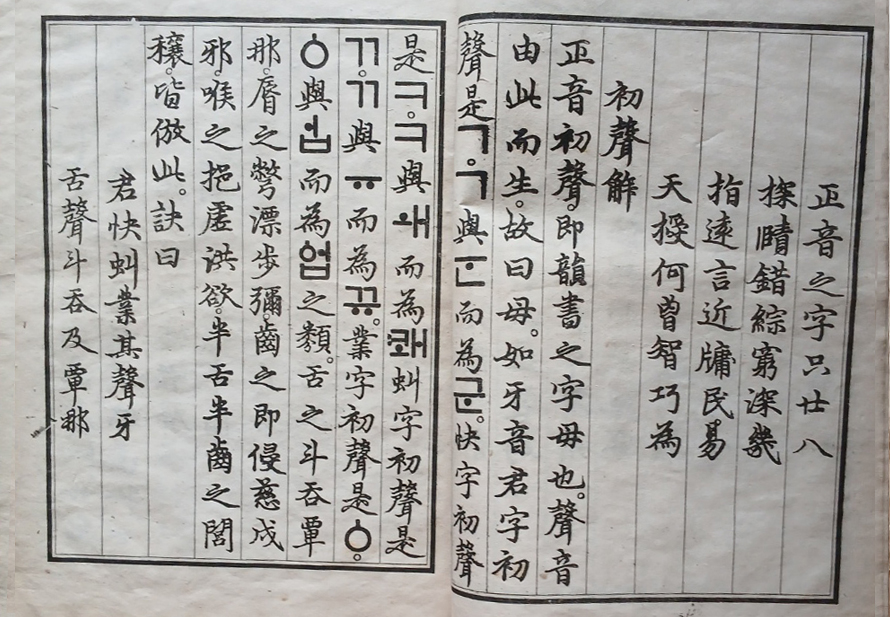 正音之字只廿八
探賾錯綜窮深幾
指遠言近牖民易
天授何曾智巧為
初聲解
正音初聲。即韻書之字母也。聲音
由此而生。故曰母。如牙音君字初
聲是ㄱ。ㄱ與ᅟᅮᆫ而為군。快字初聲
是ㅋ。ㅋ與ㅙ而為쾌虯字初聲是
ㄲ。ㄲ與ㅠ而為뀨。業字初聲是ㆁ。
ㆁ與ᅟᅥᆸ而為ᅌᅥᆸ之類。舌之斗吞覃
那。脣之彆漂步彌。齒之即侵慈戌
邪。喉之挹虛洪欲。半舌半齒之閭
穰。皆倣此。訣曰
君快虯業其聲牙
舌聲斗吞及覃那